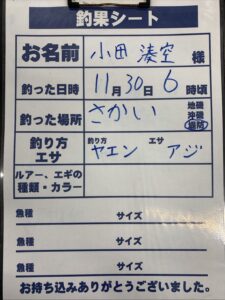 釣果シート
お名前 小田 湊空 様
釣った日時 11月30日 6時頃
釣った場所 さかい 地磯 沖磯 堤防
釣り方 エサ 釣り方 ヤエン エサ アジ
ルアー、エギの種類・カラー
魚種 サイズ
魚種 サイズ
魚種 サイズ
お持ち込みありがとうございました。